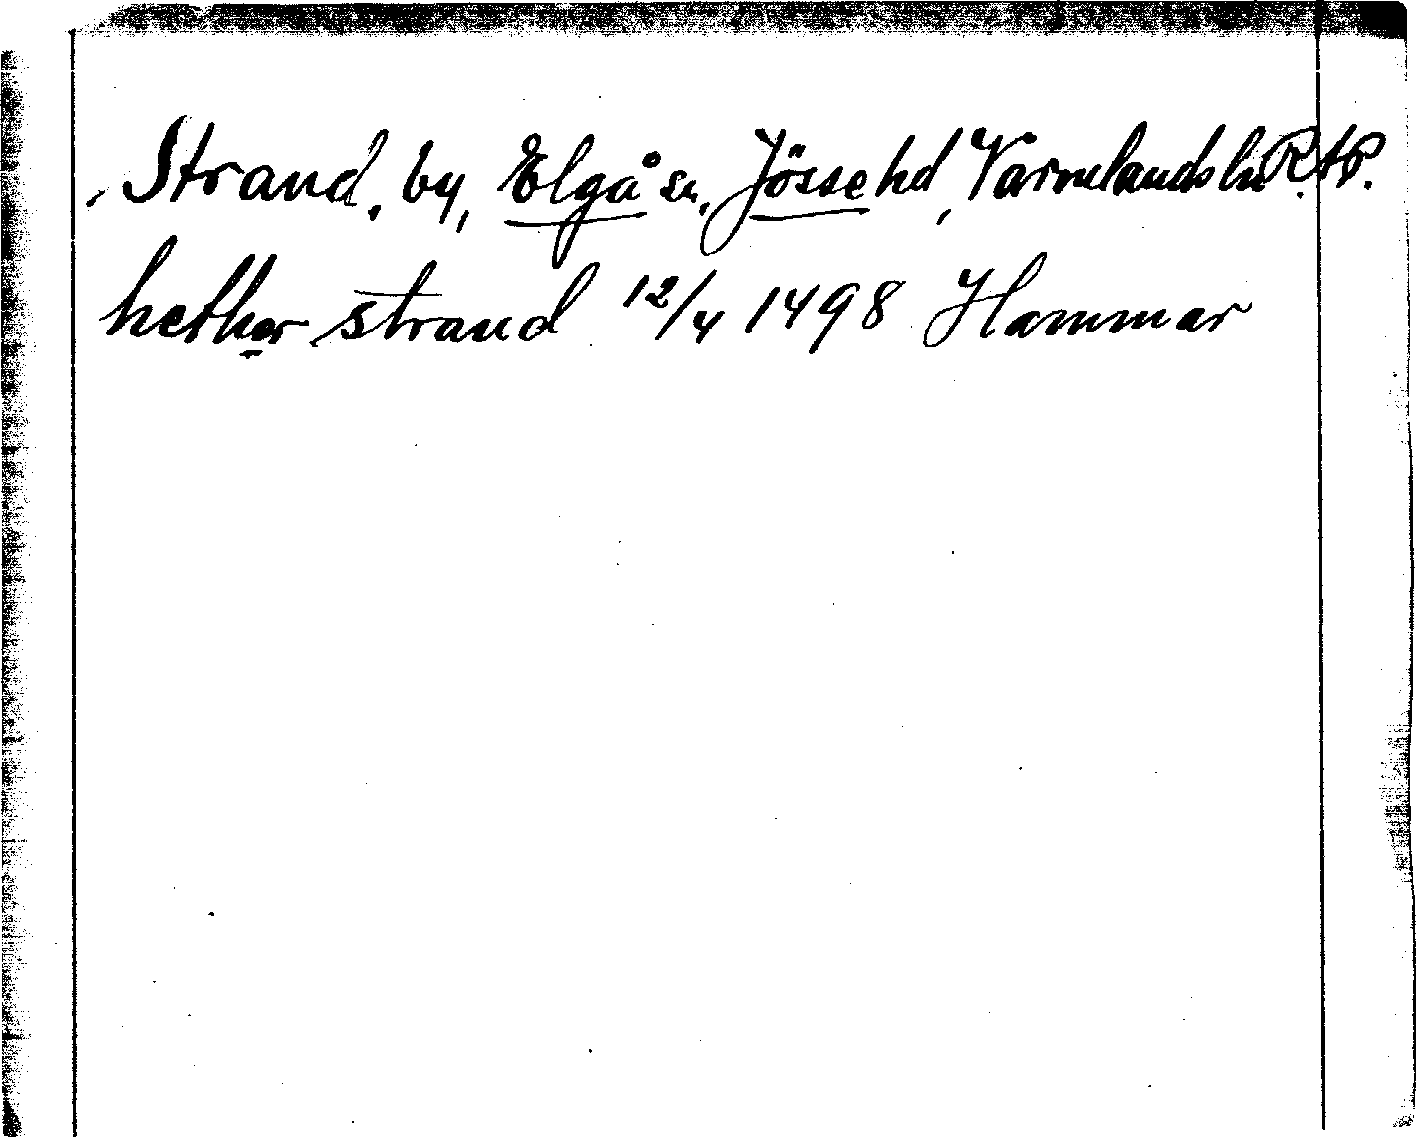 Strand, by, Elgå sn, Jösse hd, Värmlands ln R.A.P.
hether strand 12/4 1498 Hammar